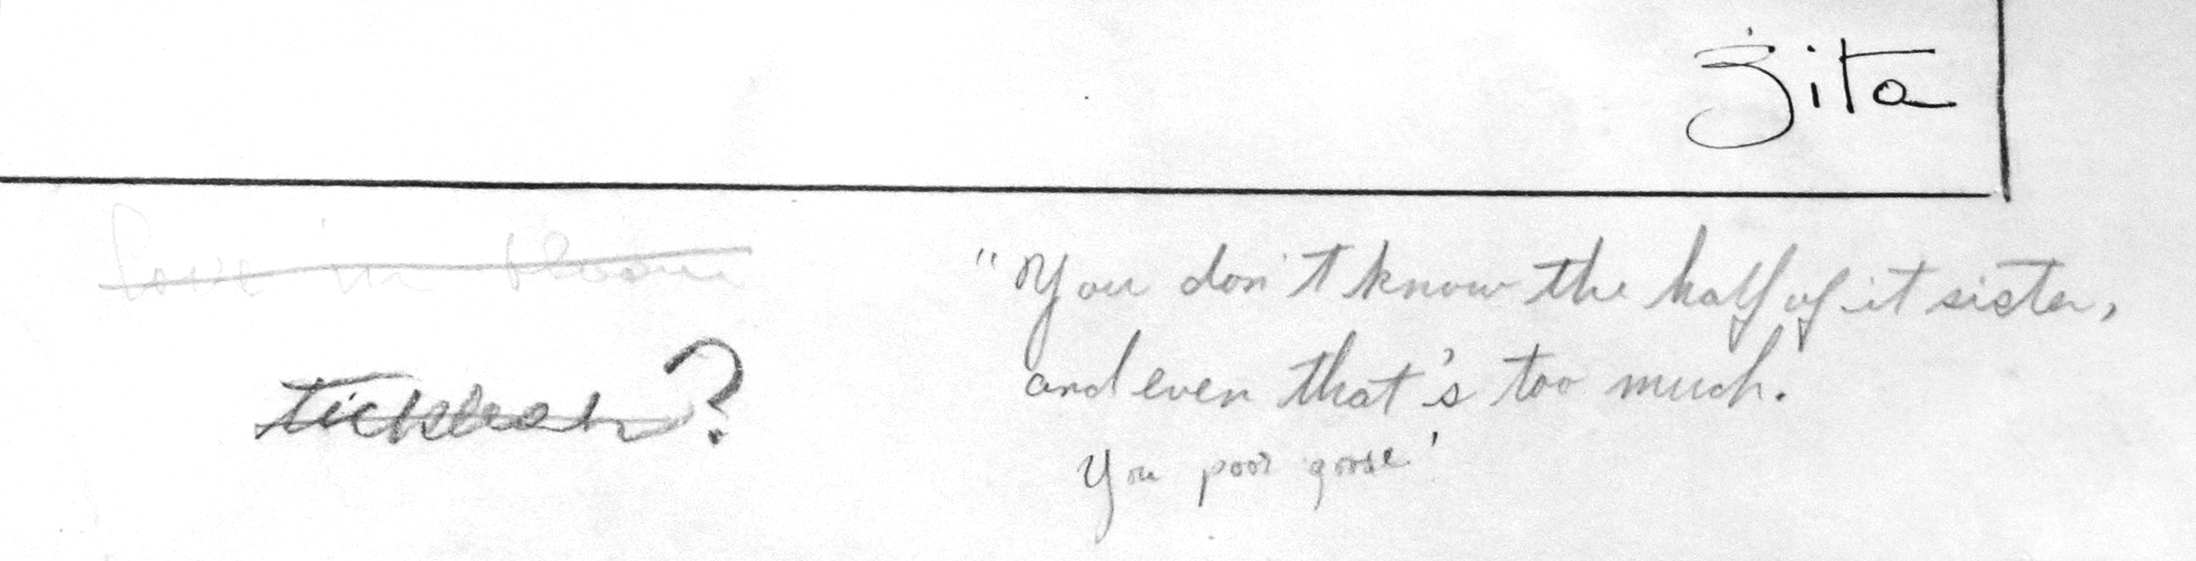 Zita
Love in bloom
"You don't know the half of it sister,
and even that's too much.
You poor goose'
?